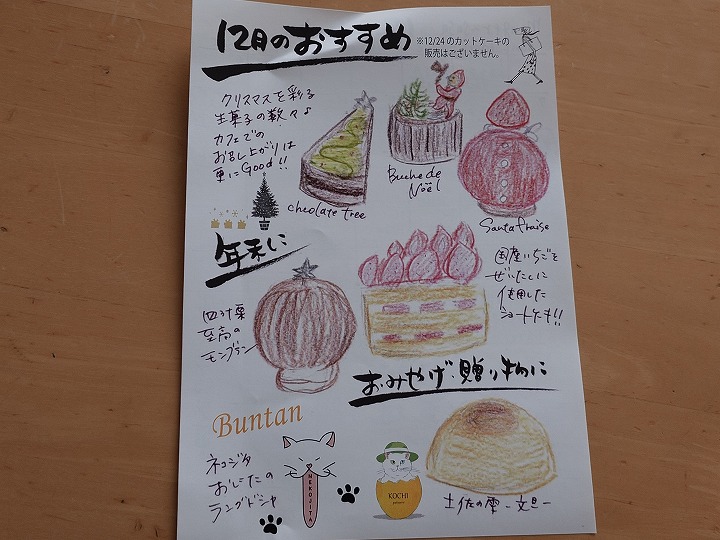 12月のおすすめ
※12/24のカットケーキの
販売はございません。
クリスマスを彩る
生菓子の数々♪
カフェでの
お召し上がりは
更にGood!!
chocolate tree
Buche de
Noël
Santa fraise
年末に
四万十栗
至高の
モンブラン
国産いちごを
ぜいたくに
使用した
ショートケーキ!!
おみやげ・贈り物に
Buntan
ネコジタ
おしたの
ラングドシャ
NEKOJITA
KOCHI
土佐の雫-文旦-